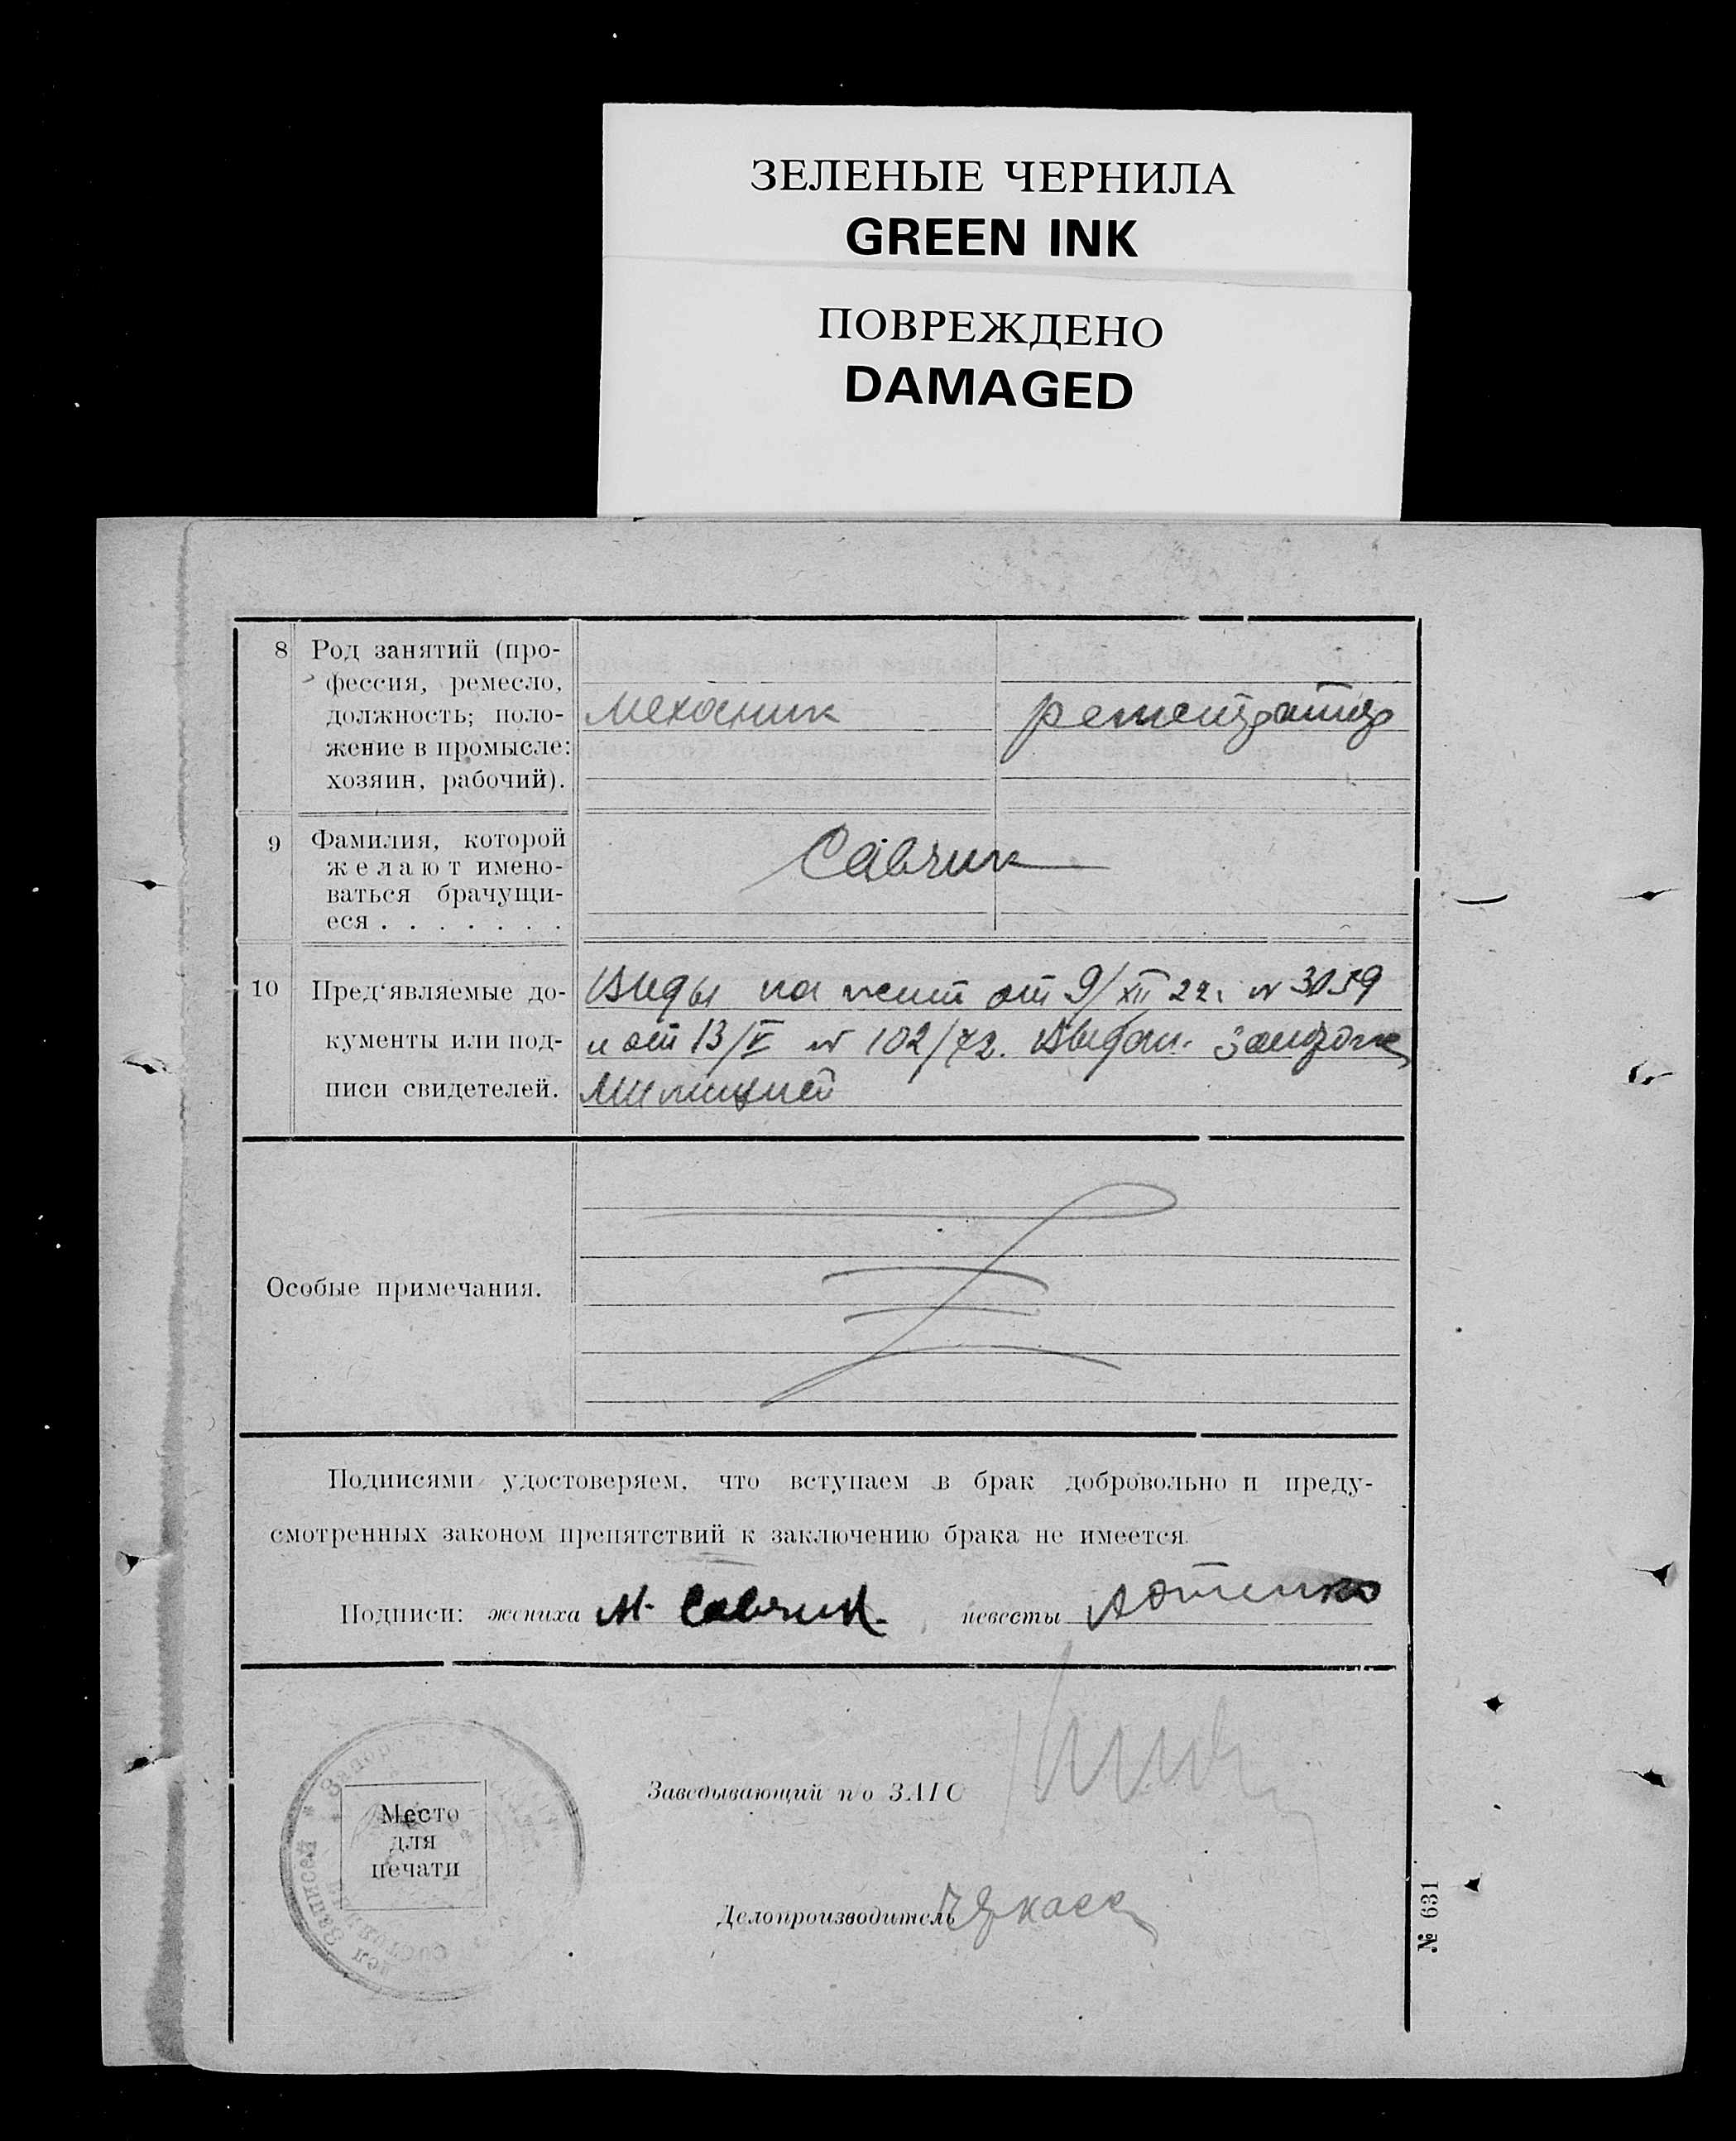 ЗЕЛЕНЫЕ ЧЕРНИЛА
GREEN INK
ПОВРЕЖДЕНО
DAMAGED
8 Род занятий (про-
фессия, ремесло,
должность; поло-
жение в промысле:
хозяин, рабочий).
механик
9 Фамилия, которой
желают имено-
ваться брачущи-
еся . . . . . . .
Савчик
10 Пред'являемые до-
кументы или под-
писи свидетелей.
Виды на жит от 9/XII 22г №
и от 13/V № 102/72. Выдан.
Милицией
Особые примечания.
Подписями удостоверяем, что вступаем в брак добровольно и преду-
смотренных законом препятствий к заключению брака не имеется.
Подписи: жениха М. Савчик. невесты
Заведывающий п/о ЗАГС
Место
для
печати
Записей
Делопроизводитель
№ 631